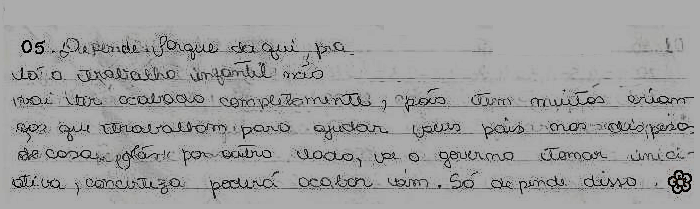 05. Depende. Porque daqui, pra
lá o trabalho infantil não
vai ter acabado completamente, pois tem muitos crian
ças que trabalham para ajudar seus pais nas despesa
de casa, por outro lado, se o governo tomar inici-
ativa, concerteza poderá acabar sim. Só depende disso.